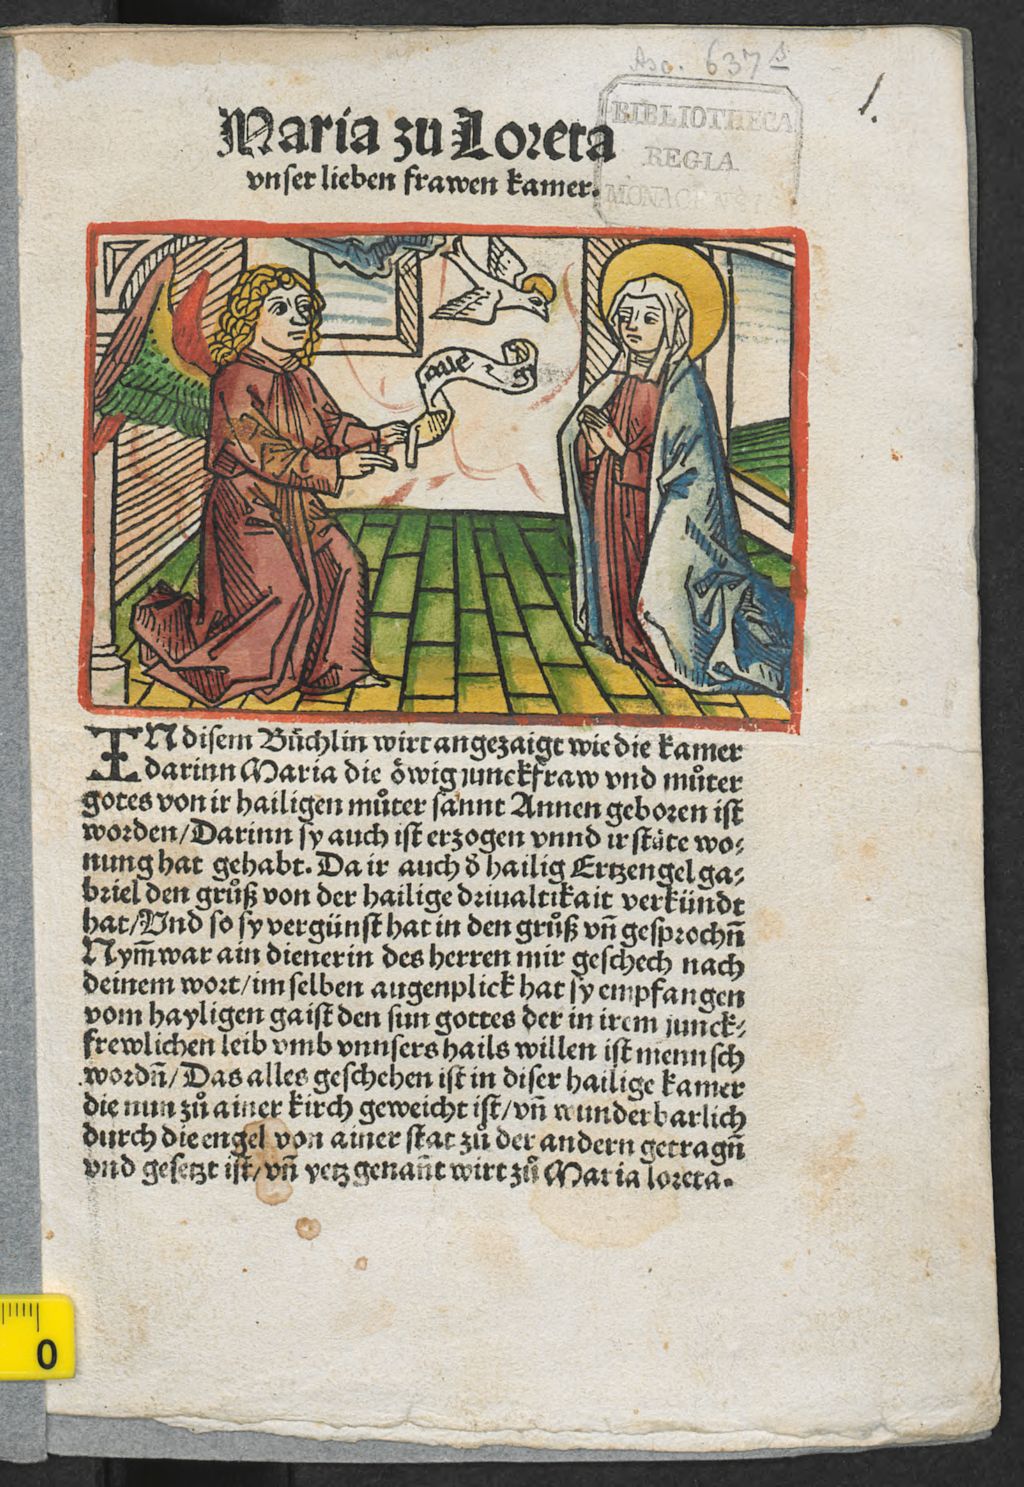 Asc. 637 s
1.
BIBLIOTHECA
REGIA
MONACENSIS
Maria zu Loreta
vnser lieben frawen kamer.
aue
IN disem Büchlin wirt angezaigt wie die kamer
darinn Maria die öwig junckfraw vnd můter
gotes von ir hailigen můter sannt Annen geboren ist
worden/Darinn sy auch ist erzogen vnnd ir stäte wo⸗
nung hat gehabt. Da ir auch d̕ hailig Ertzengel ga⸗
briel den grůß von der hailige driualtikait verkündt
hat/Vnd so sy vergünst hat in den grůß vn̄ gesprochn̄
Nym̄ war ain dienerin des herren mir geschech nach
deinem wort/im selben augenplick hat sy empfangen
vom hayligen gaist den sun gottes der in irem junck⸗
frewlichen leib vmb vnnsers hails willen ist mennsch
wordn̄/Das alles geschehen ist in diser hailige kamer
die nun zů ainer kirch geweicht ist/vn̄ wunderbarlich
durch die engel von ainer stat zů der andern getragn̄
vnd gesetzt ist/vn̄ yetz genan̄t wirt zů Maria loreta.
0